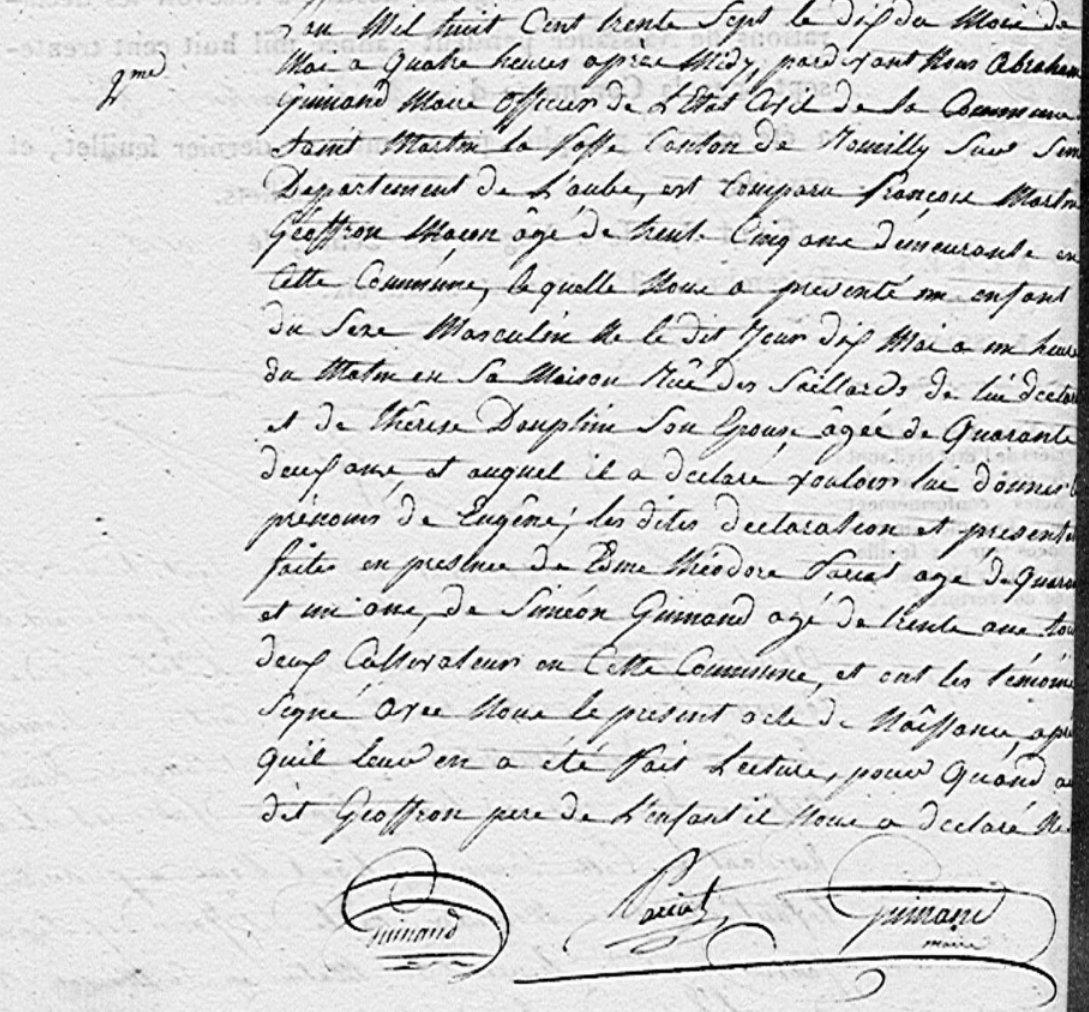 an Mil huit Cent trente Sept le dix du Moie de
Mai a Quatre heures après Midy, pardevant Nous Abraham
Guinand Maire Officier de L'Etat Civil de la Commune
Saint Martin la Fosse Canton de Romilly Sur Sein
Departement de L'aube, est Comparu françois Martin
Geoffron Maçon âgé de trente Cinq ans demeurante en
Cette Commune, lequelle Nous a presenté un enfant
du Sexe Masculin Né le dit Jour dix Mai a un heure
du Matin en Sa Maison Rûe des de lui declar
et de Thérèse Dauphin Son Epouse âgée de Quarante
deux ans, et auquel il a declaré vouloir lui donner l
prénoms de Eugêne; les dites declaration et presente
faites en presence de Edme Théodore Pariat age de quara
et un ans, de Siméon Guinand agé de trente ans tou
deux Cultivateur en Cette Commune, et ont les témoins
Signé Avec Nous le present acte de Nâissance, apr
quil leur en a été fait Lecture, pour Quand a
dit Geoffron pere de L'enfant il Nous a declaré Ne
Guinand Pariat Guinand
maire